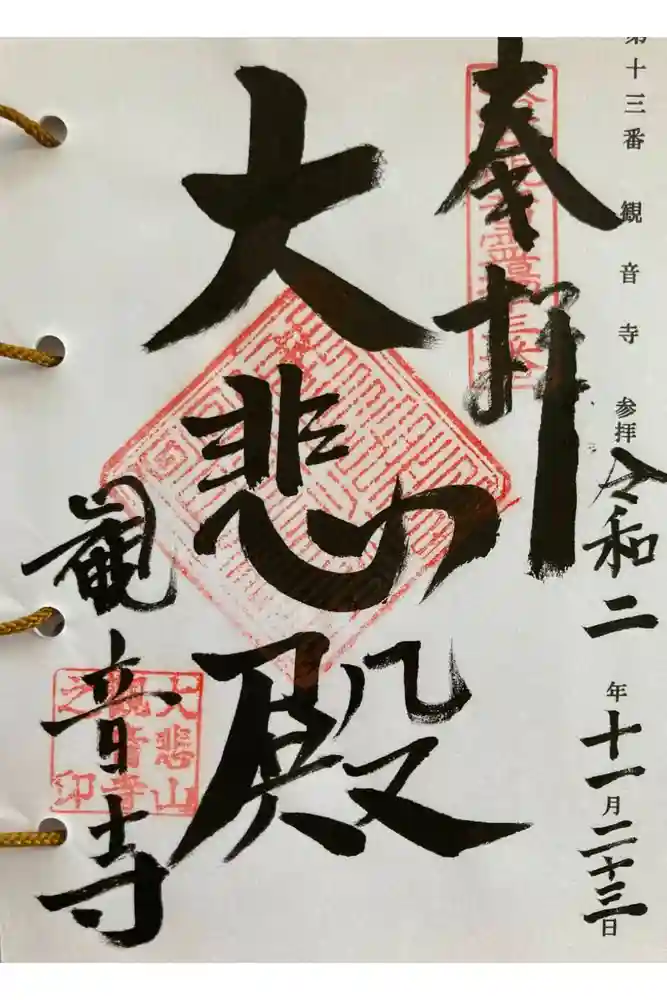 第十三番 観音寺 参拝
令和二年十一月二十三日
奉拝
大悲殿
観音寺
大悲山
観音寺
之印